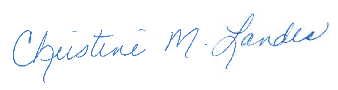 Christine M. Landes